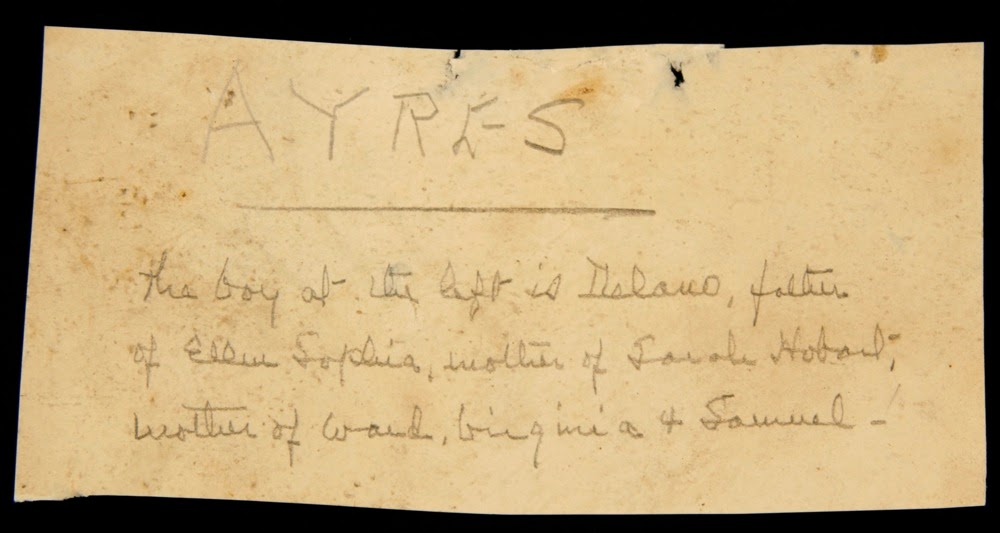 AYRES
the boy at the left is Delano, father
of Ellen Sophia, mother of Sarah Hobart,
mother of Ward, Virginia & Samuel -